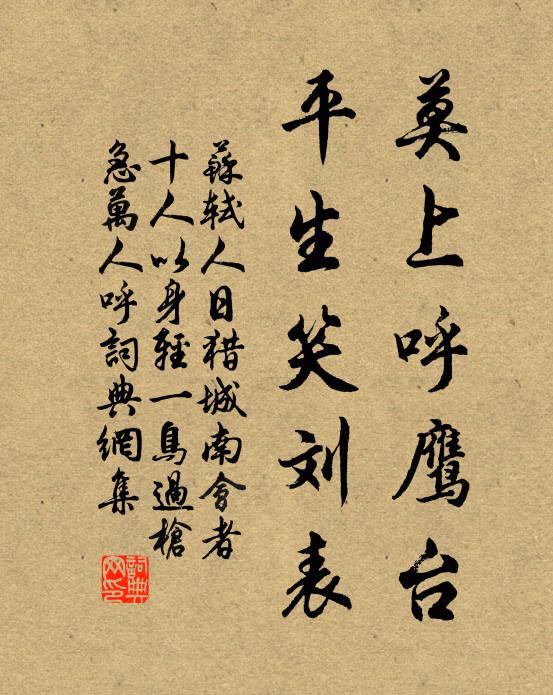 莫上呼鹰台
平生笑刘表
蘇軾人日猎城南會者
十人以身輕一鳥過槍
急萬人呼詞典網集
詞典
网印